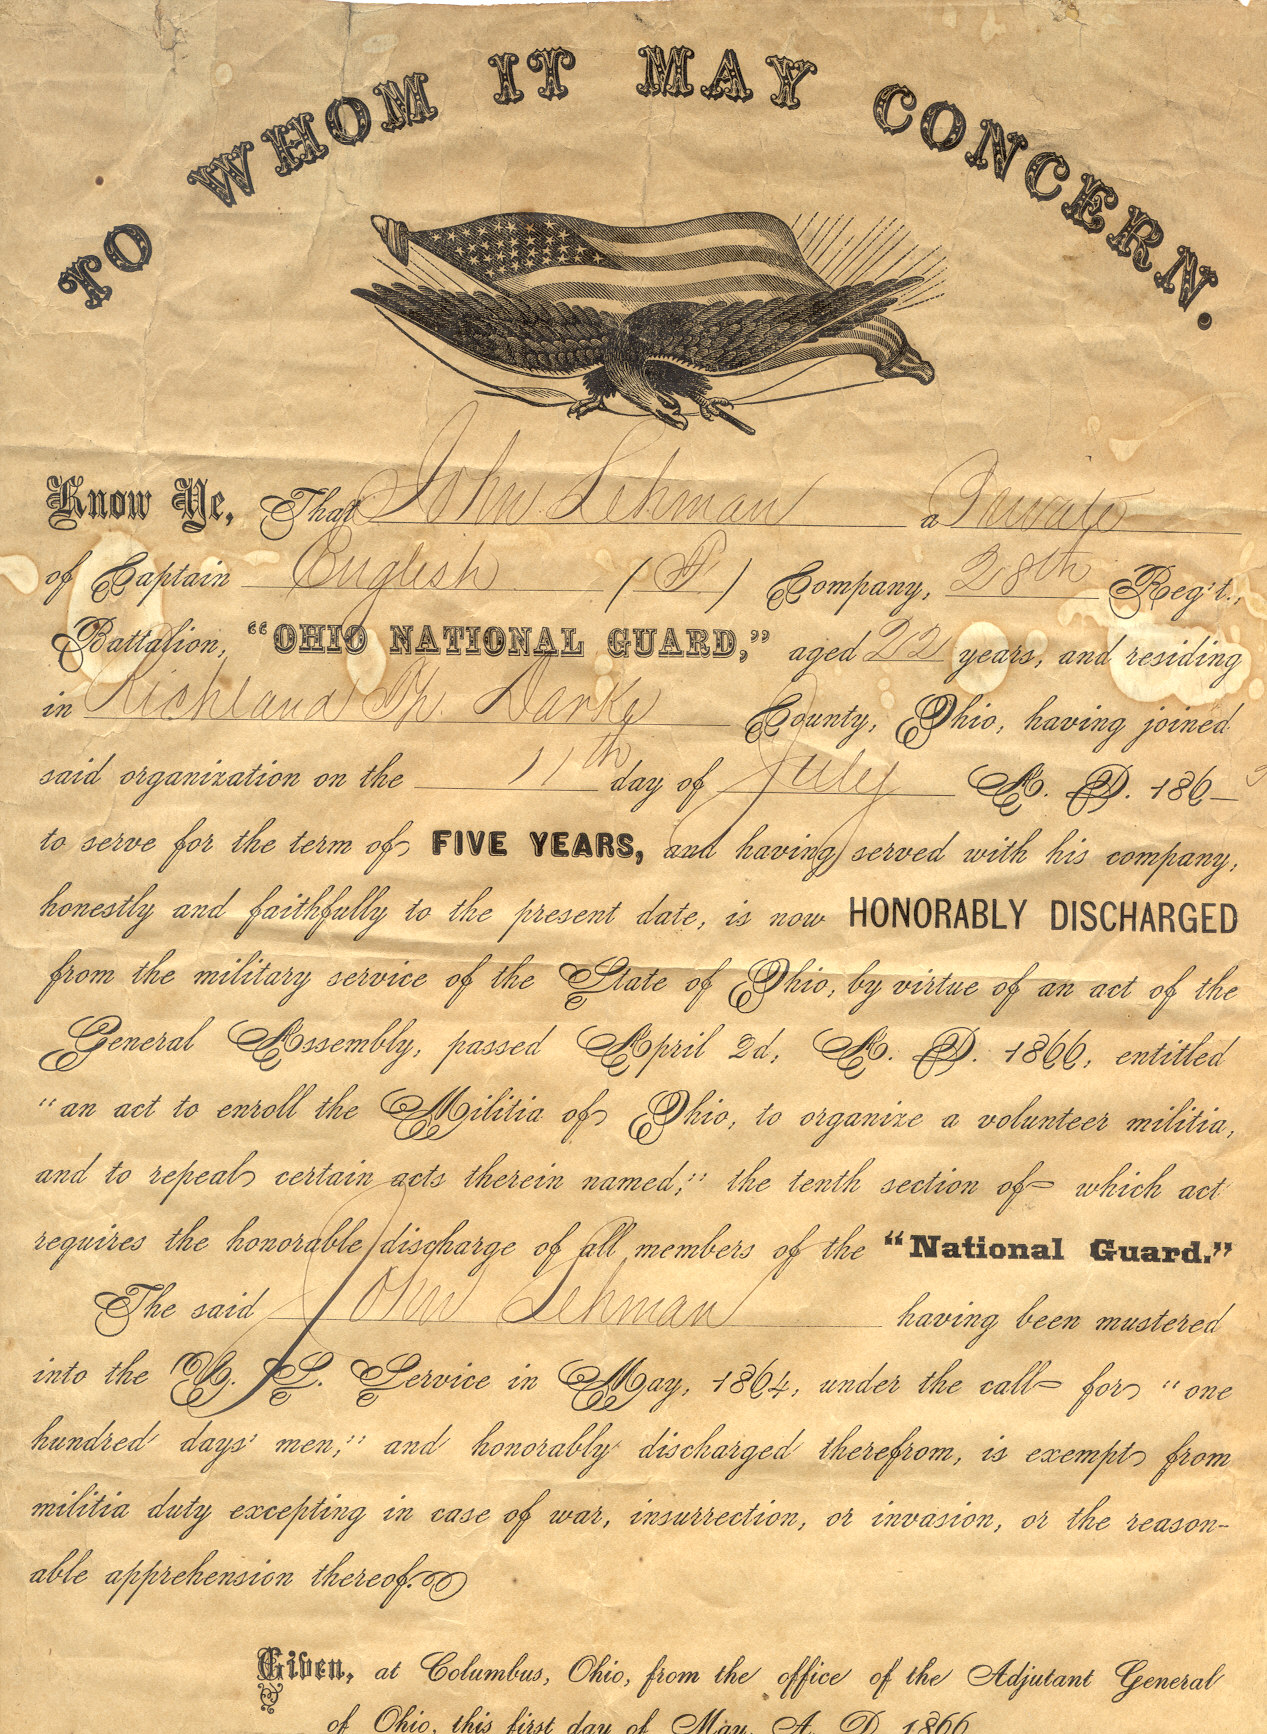 TO WHOM IT MAY CONCERN.
Know Ye, That John Lehman a Private
of Captain English (F) Company, 28th Reg't.,
Battalion, "OHIO NATIONAL GUARD," aged 22 years, and residing
in Richland Tp. Darke County, Ohio, having joined
said organization on the 11th day of July A. D. 186_3
to serve for the term of FIVE YEARS, and having served with his company,
honestly and faithfully to the present date, is now HONORABLY DISCHARGED
from the military service of the State of Ohio, by virtue of an act of the
General Assembly, passed April 2d, A. D. 1866, entitled
"an act to enroll the Militia of Ohio, to organize a volunteer militia,
and to repeal certain acts therein named;" the tenth section of which act
requires the honorable discharge of all members of the "National Guard."
The said John Lehman having been mustered
into the U. S. Service in May, 1864, under the call for "one
hundred days' men," and honorably discharged therefrom, is exempt from
militia duty excepting in case of war, insurrection, or invasion, or the reason-
able apprehension thereof.
Given, at Columbus, Ohio, from the office of the Adjutant General
of Ohio, this first day of May, A. D. 1866